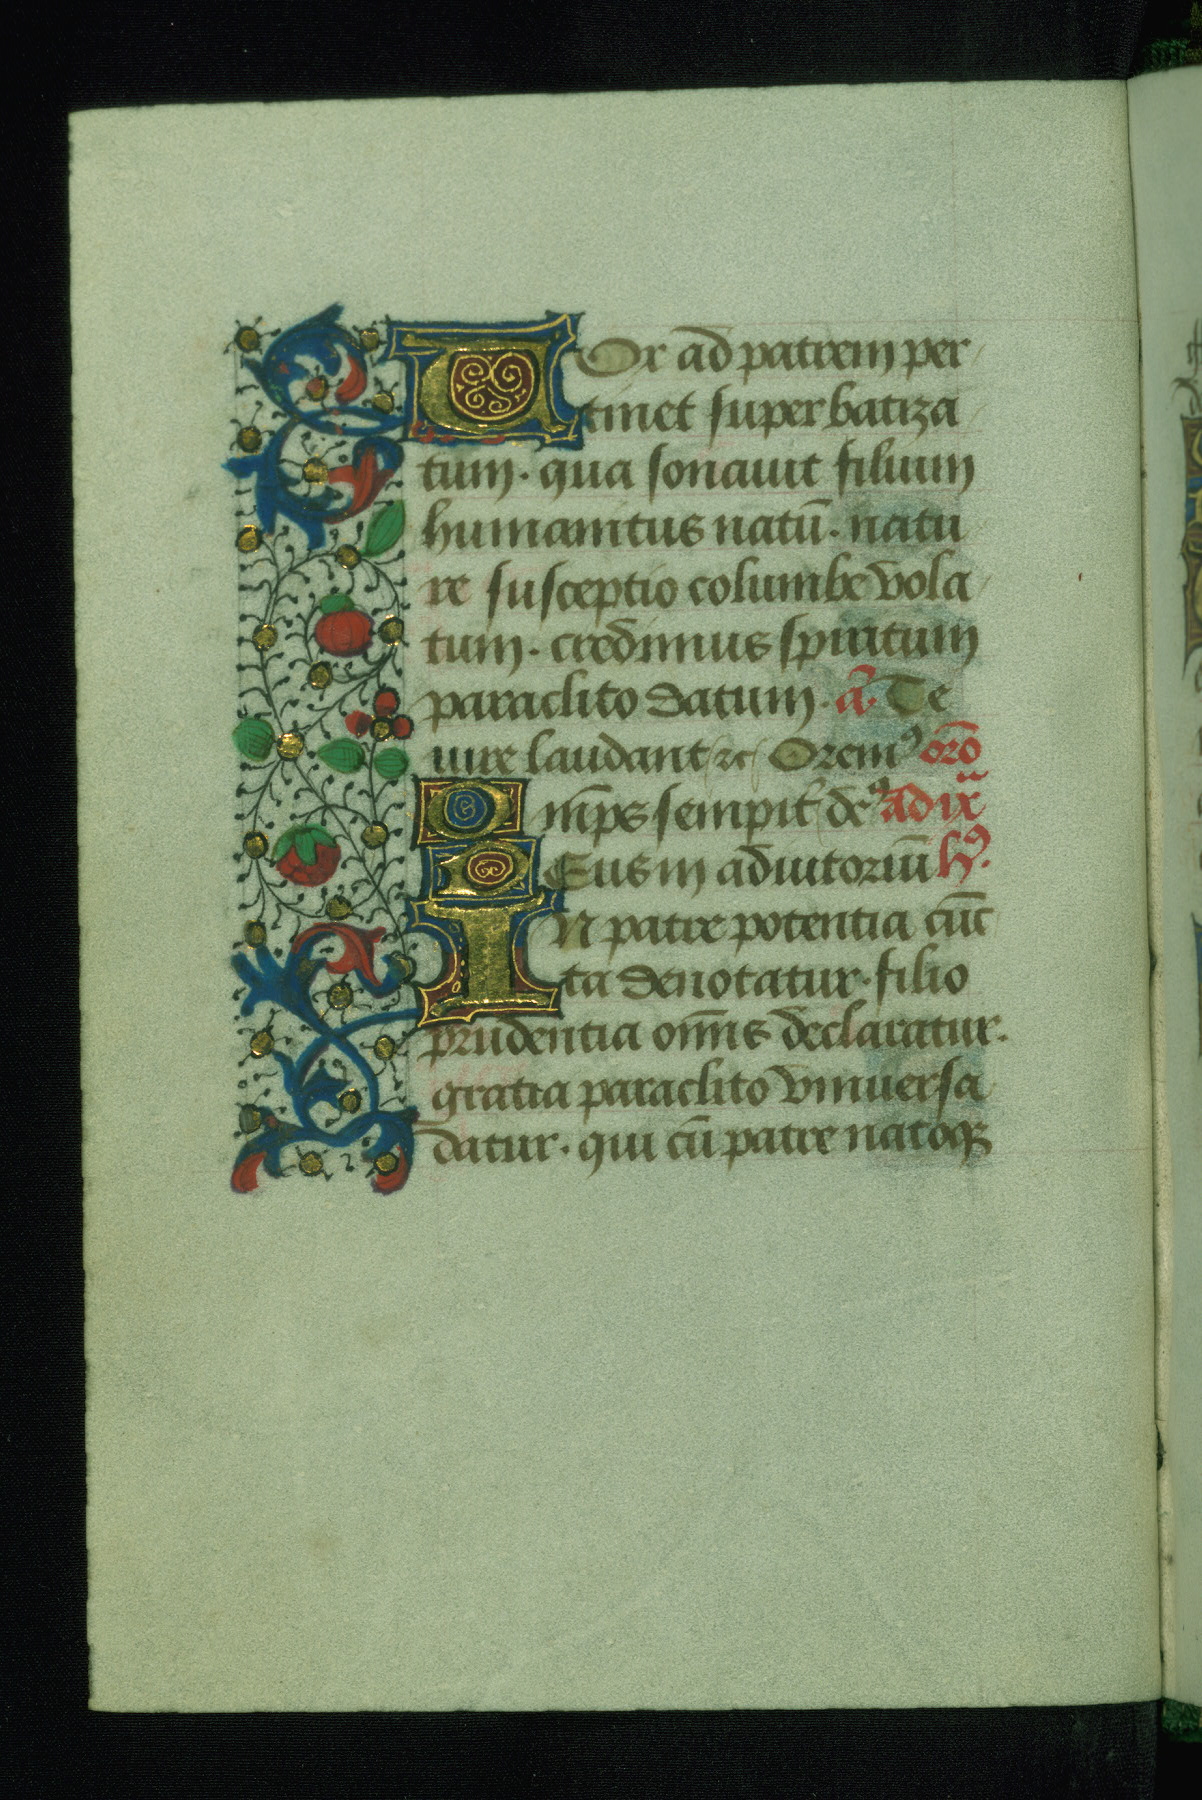 VOx ad patrem per
tinet super batiza
tum· qua sonauit filium
humanitus natū· natu
re susceptio columbe vola
tum· credimus spiritum
paraclito datum· a᷑· Te
iure laudant ⁊c Orem⁹ oro᷑
Om̄ps sempit̉ dꝰ Ad ixᵃ
DEus in adiutoriū hꝰ·
IN patre potentia cūc
ta denotatur· filio
prudentia om̄is declaratur·
gratia paraclito vniuersa
datur· qui cū patre natoqꝫ